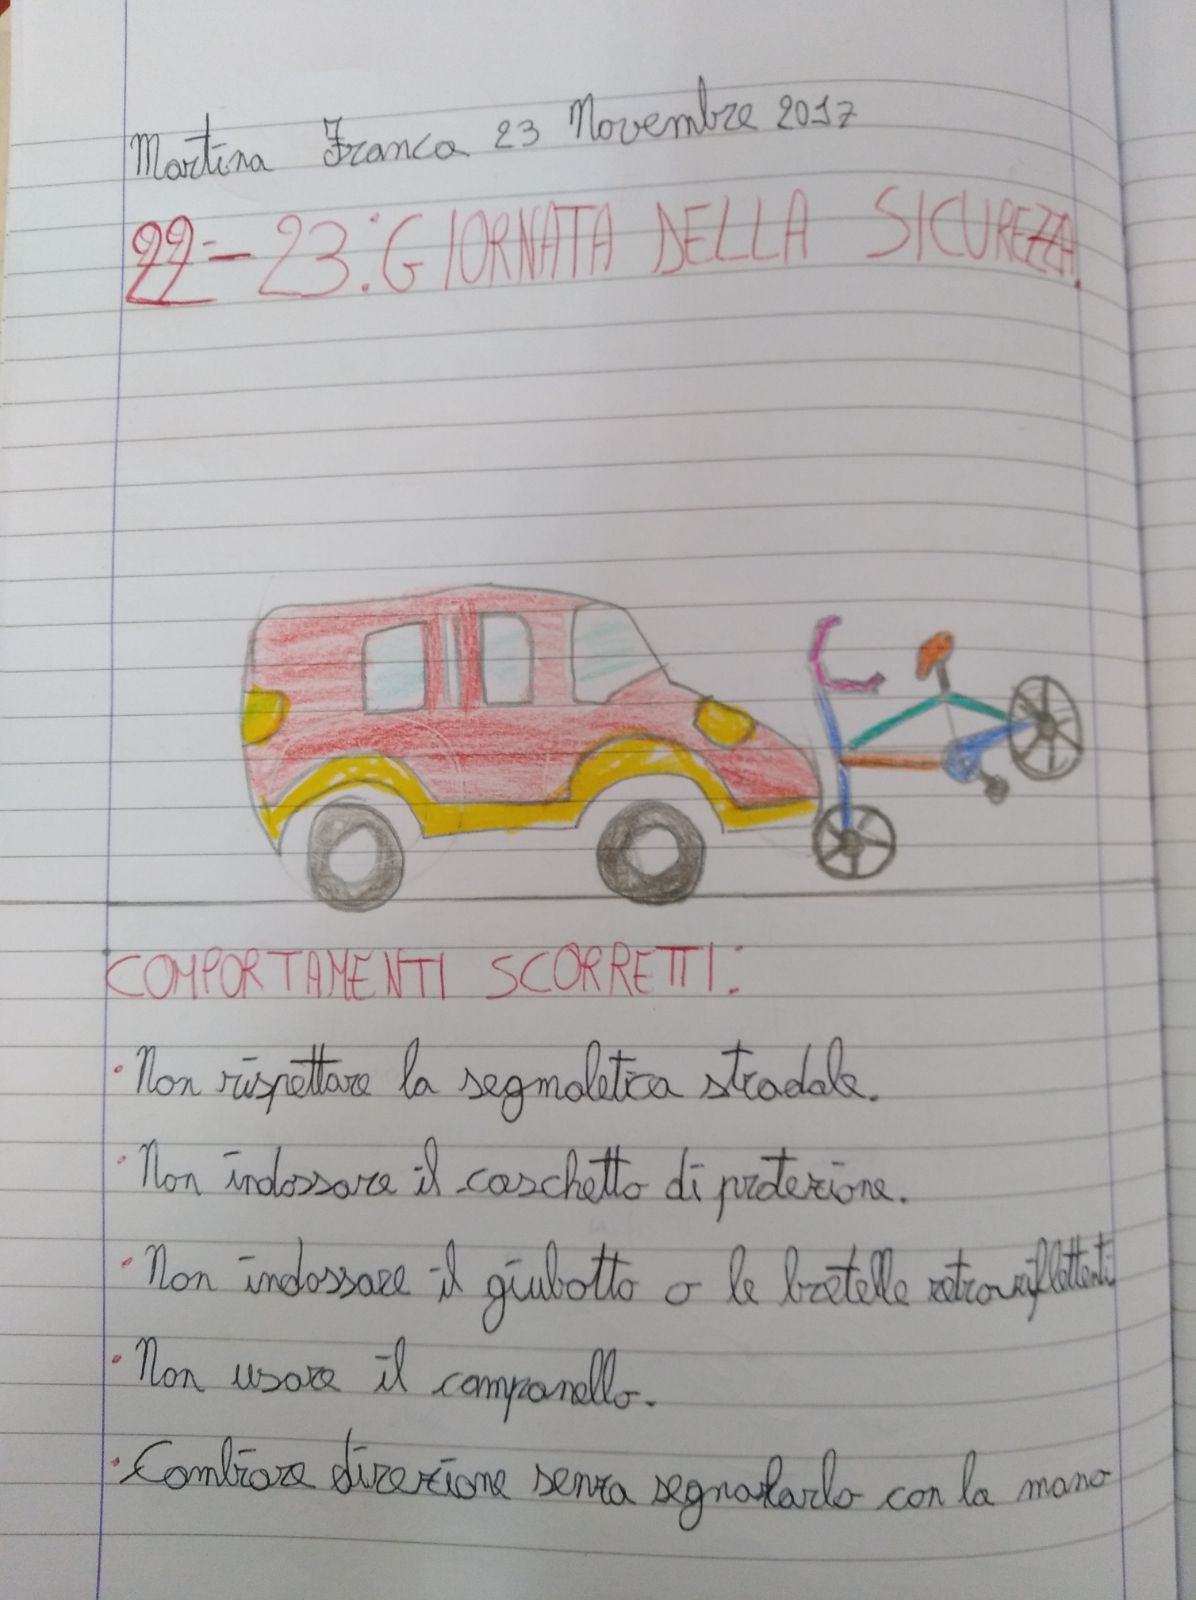 Martina Franca 23 Novembre 2017
22-23: GIORNATA DELLA SICUREZZA.
COMPORTAMENTI SCORRETTI:
• Non rispettare la segmaletica stradale.
• Non indossare il caschetto di protezione.
• Non indossare il giubotto o le bretelle retroriflettenti
• Non usare il campanello.
• Cambiare direzione senza segnalarlo con la mano